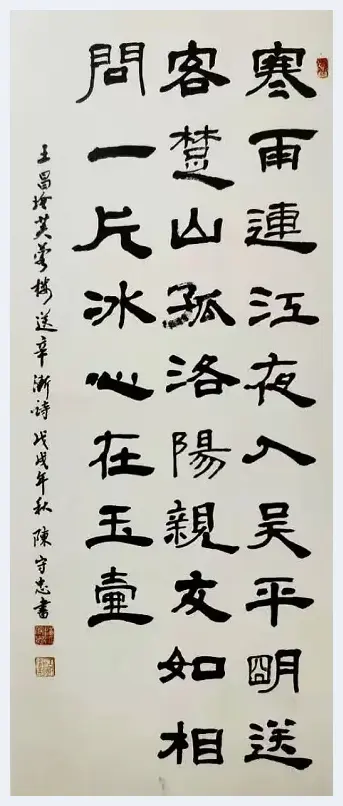 寒雨連江夜入吴平明送
客楚山孤洛陽親友如相
問一片冰心在玉壷
王昌龄芙蓉楼送辛渐诗戊戌年秋陳守忠書